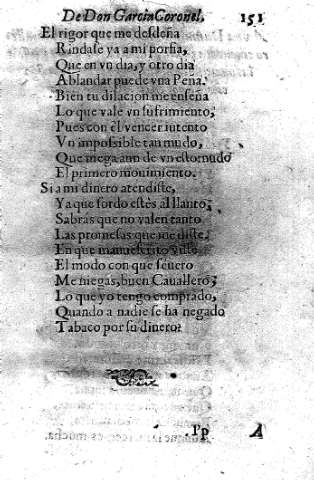 De Don Garcia Coronel. 151
El rigor que me desdeña
Rindase ya a mi porfia,
Que en vn dia, y otro dia
Ablandar puede vna Peña.
Bien tu dilacion me enseña
Lo que vale vn sufrimiento,
Pues con èl vencer intento
Vn impossible tan mudo,
Que niega aun de vn estornudo
El primero mouimiento.
Si a mi dinero atendiste,
Ya que sordo estès al llanto,
Sabras que no valen tanto
Las promesas que me diste.
En que
El modo con que seuero
Me niegas, buen Cauallero,
Lo que yo tengo comprado,
Quando a nadie se ha negado
Tabaco por su dinero?
Pp A